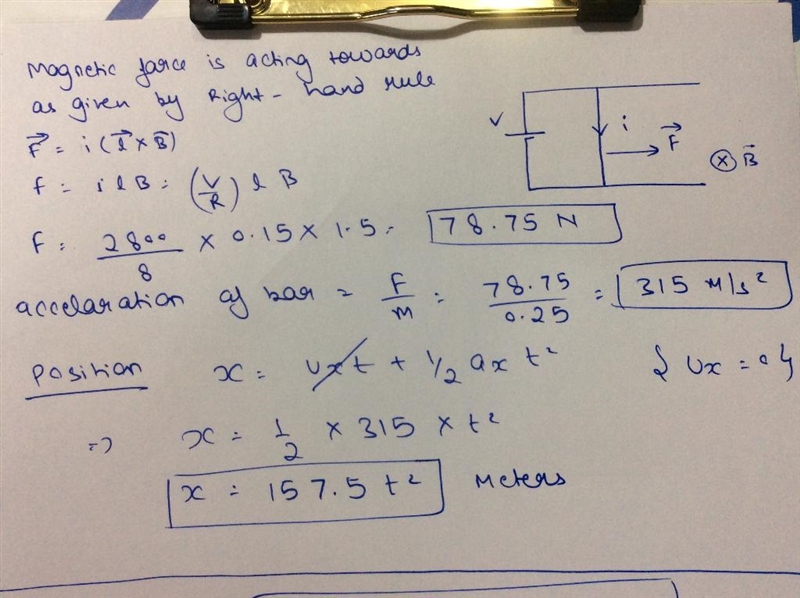 Magnetic force is acting towards
as given by Right-hand rule
F⃗ = i(l⃗ × B⃗)
f = ilB = (V/R) l B
F = 2800/8 × 0.15 × 1.5 = 78.75 N
V
i
F⃗
⊗ B⃗
accelaration of bar = F/m = 78.75/0.25 = 315 M/s²
Position x = Uxt + 1/2 ax t² { Ux = 0 }
=> x = 1/2 × 315 × t²
x = 157.5 t² Meters